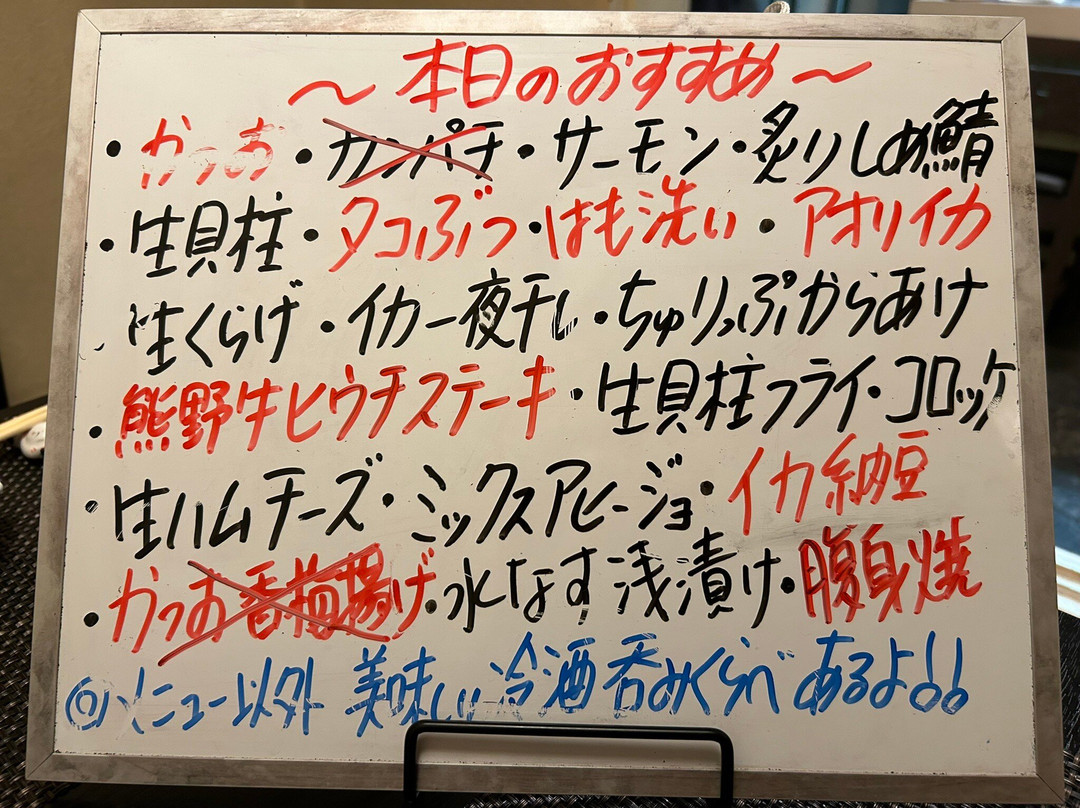 ～本日のおすすめ～
・かつお・カンパチ・サーモン・炙りしめ鯖
・生貝柱・タコぶつ・はも洗い・アオリイカ
・生くらげ・イカ一夜干し・ちゅりっぷからあげ
・熊野牛ヒウチステーキ・生貝柱フライ・コロッケ
・生ハムチーズ・ミックスアヒージョ・イカ納豆
・かつお香梅揚げ・水なす浅漬け・腹身焼
◎メニュー以外 美味しい冷酒呑みくらべあるよ!!